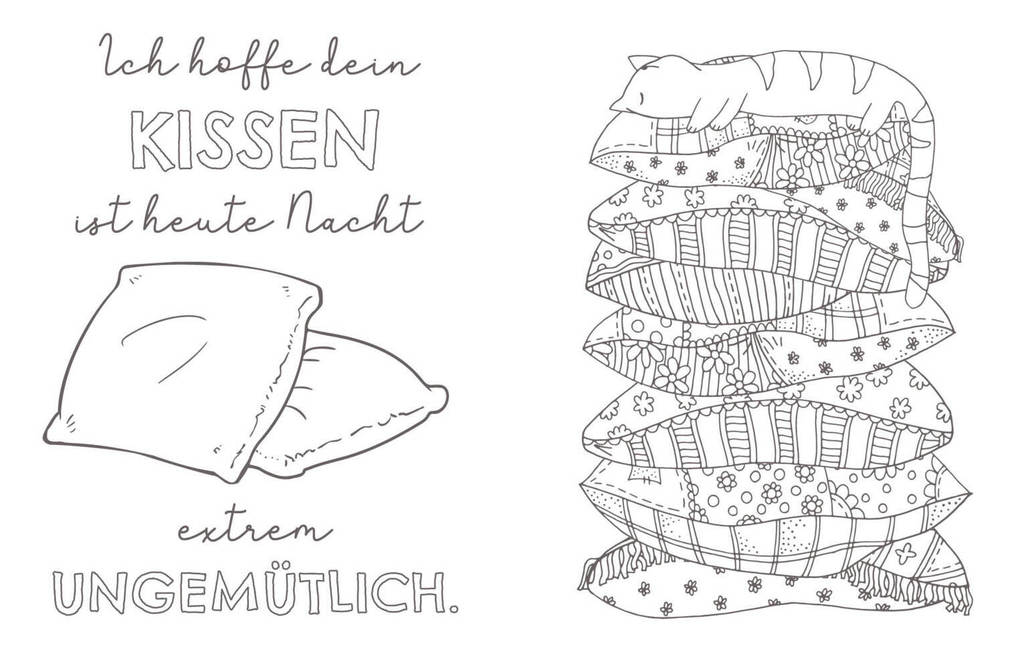 Ich hoffe dein
KISSEN
ist heute Nacht
extrem
UNGEMÜTLICH.